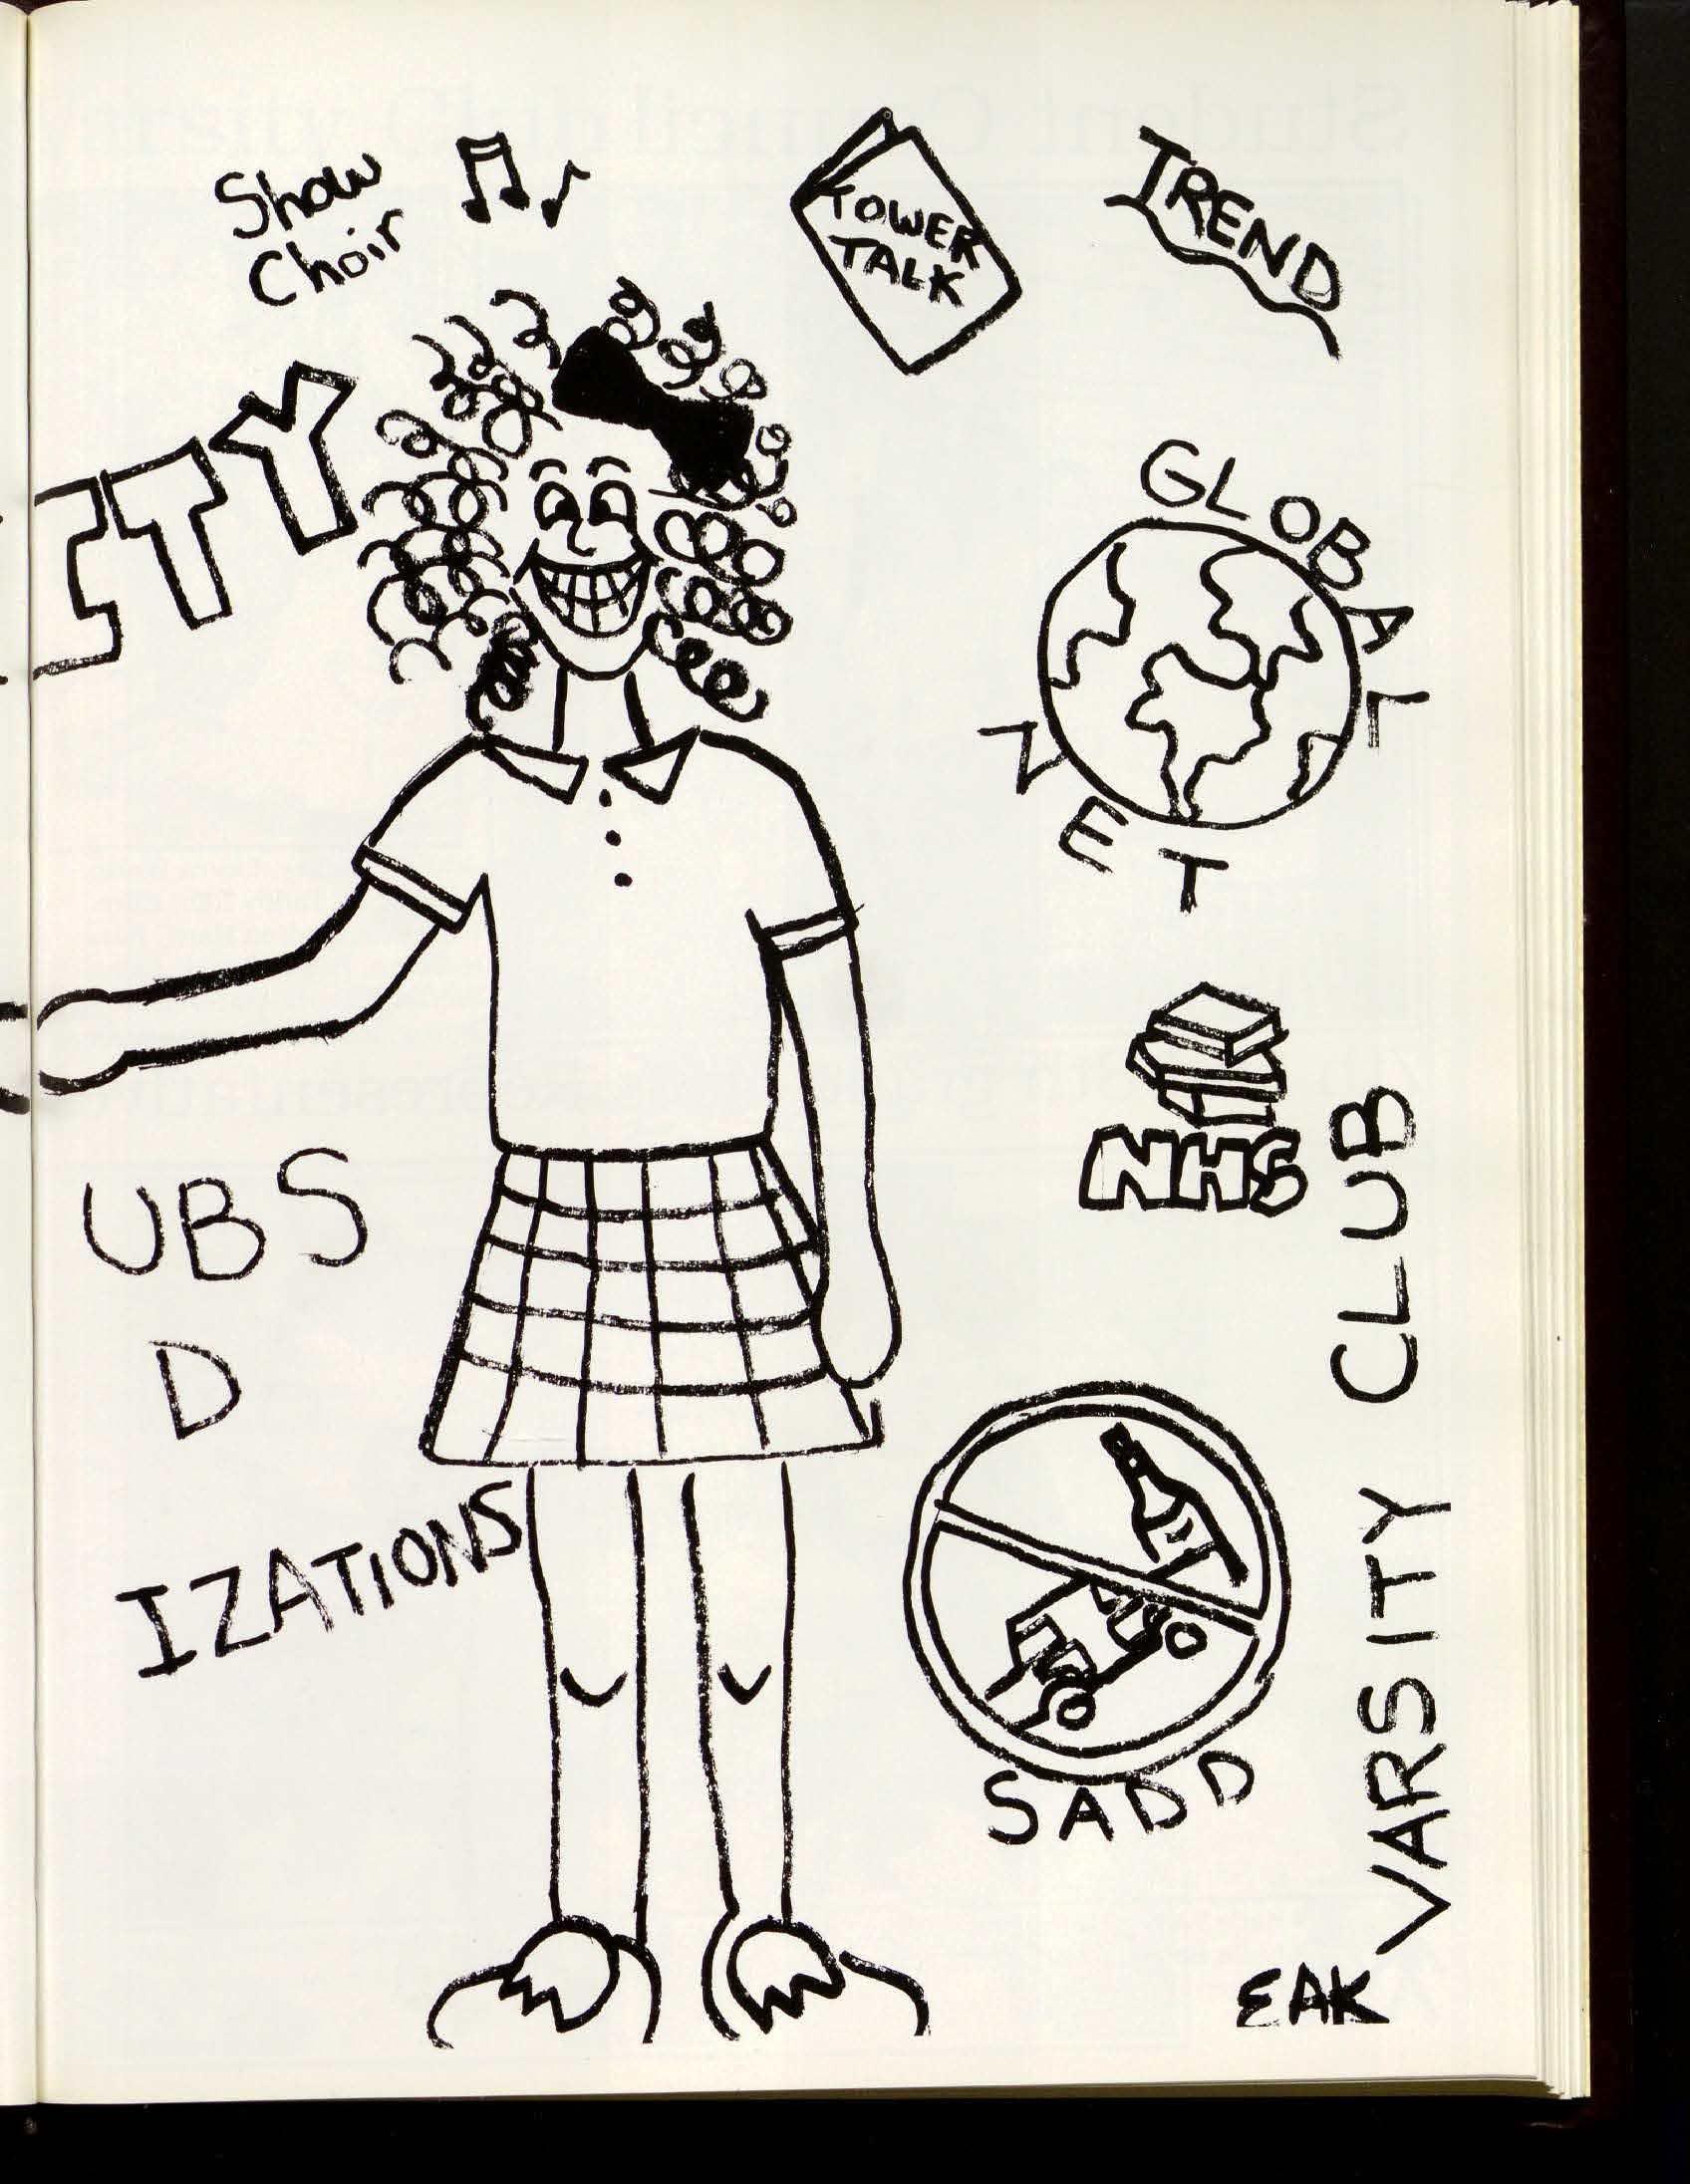 Show
Choir
TOWER
TALK
TREND
ITY
GLOBAL
NET
NHS
UBS
D
IZATIONS
VARSITY CLUB
SADD
EAK